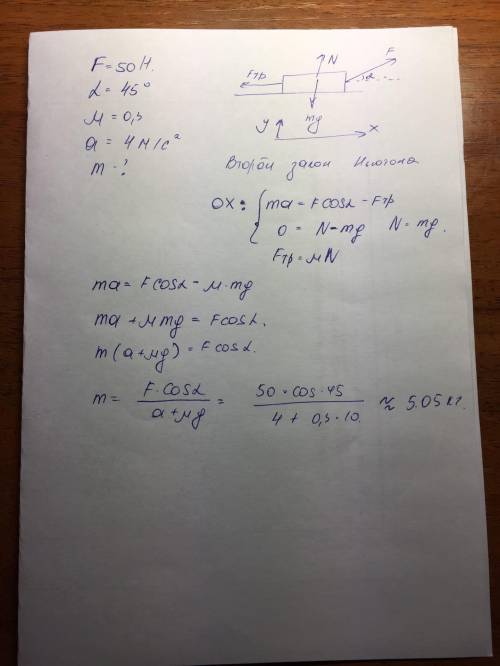 F = 50 Н.
α = 45°
μ = 0,3
a = 4 м/с²
m - ?
N
F
Fтр
α
mg
y
x
Второй закон Ньютона
OX: { ma = Fcosα - Fтр
0 = N - mg N = mg.
Fтр = μN
ma = Fcosα - μ·mg
ma + μmg = Fcosα.
m(a+μg) = Fcosα.
m = F·cosα / a+μg = 50·cos·45 / 4 + 0,3·10 ≈ 5.05 кг.